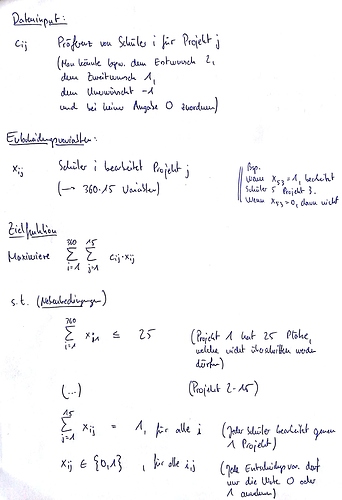 Dateninput:
cij Präferenz von Schüler i für Projekt j
(Man könnte bspw. dem Erstwunsch 2,
dem Zweitwunsch 1,
dem Unerwünscht -1
und bei keiner Angabe 0 zuordnen)
Entscheidungsvariablen:
xij Schüler i bearbeitet Projekt j
(→ 360·15 Variablen)
Bsp.
Wenn x53 = 1, bearbeitet
Schüler 5 Projekt 3.
Wenn x53 = 0, dann nicht
Zielfunktion
Maximiere 360 ∑ i=1 15 ∑ j=1 cij·xij
s.t. (Nebenbedingungen)
360 ∑ i=1 xi1 ≤ 25 (Projekt 1 hat 25 Plätze,
welche nicht überschritten werden
dürfen)
(...) (Projekt 2-15)
15 ∑ j=1 xij = 1, für alle i (Jeder Schüler bearbeitet genau
1 Projekt)
xij ∈ {0,1} , für alle i,j (Jede Entscheidungsvar. darf
nur die Werte 0 oder
1 annehmen)